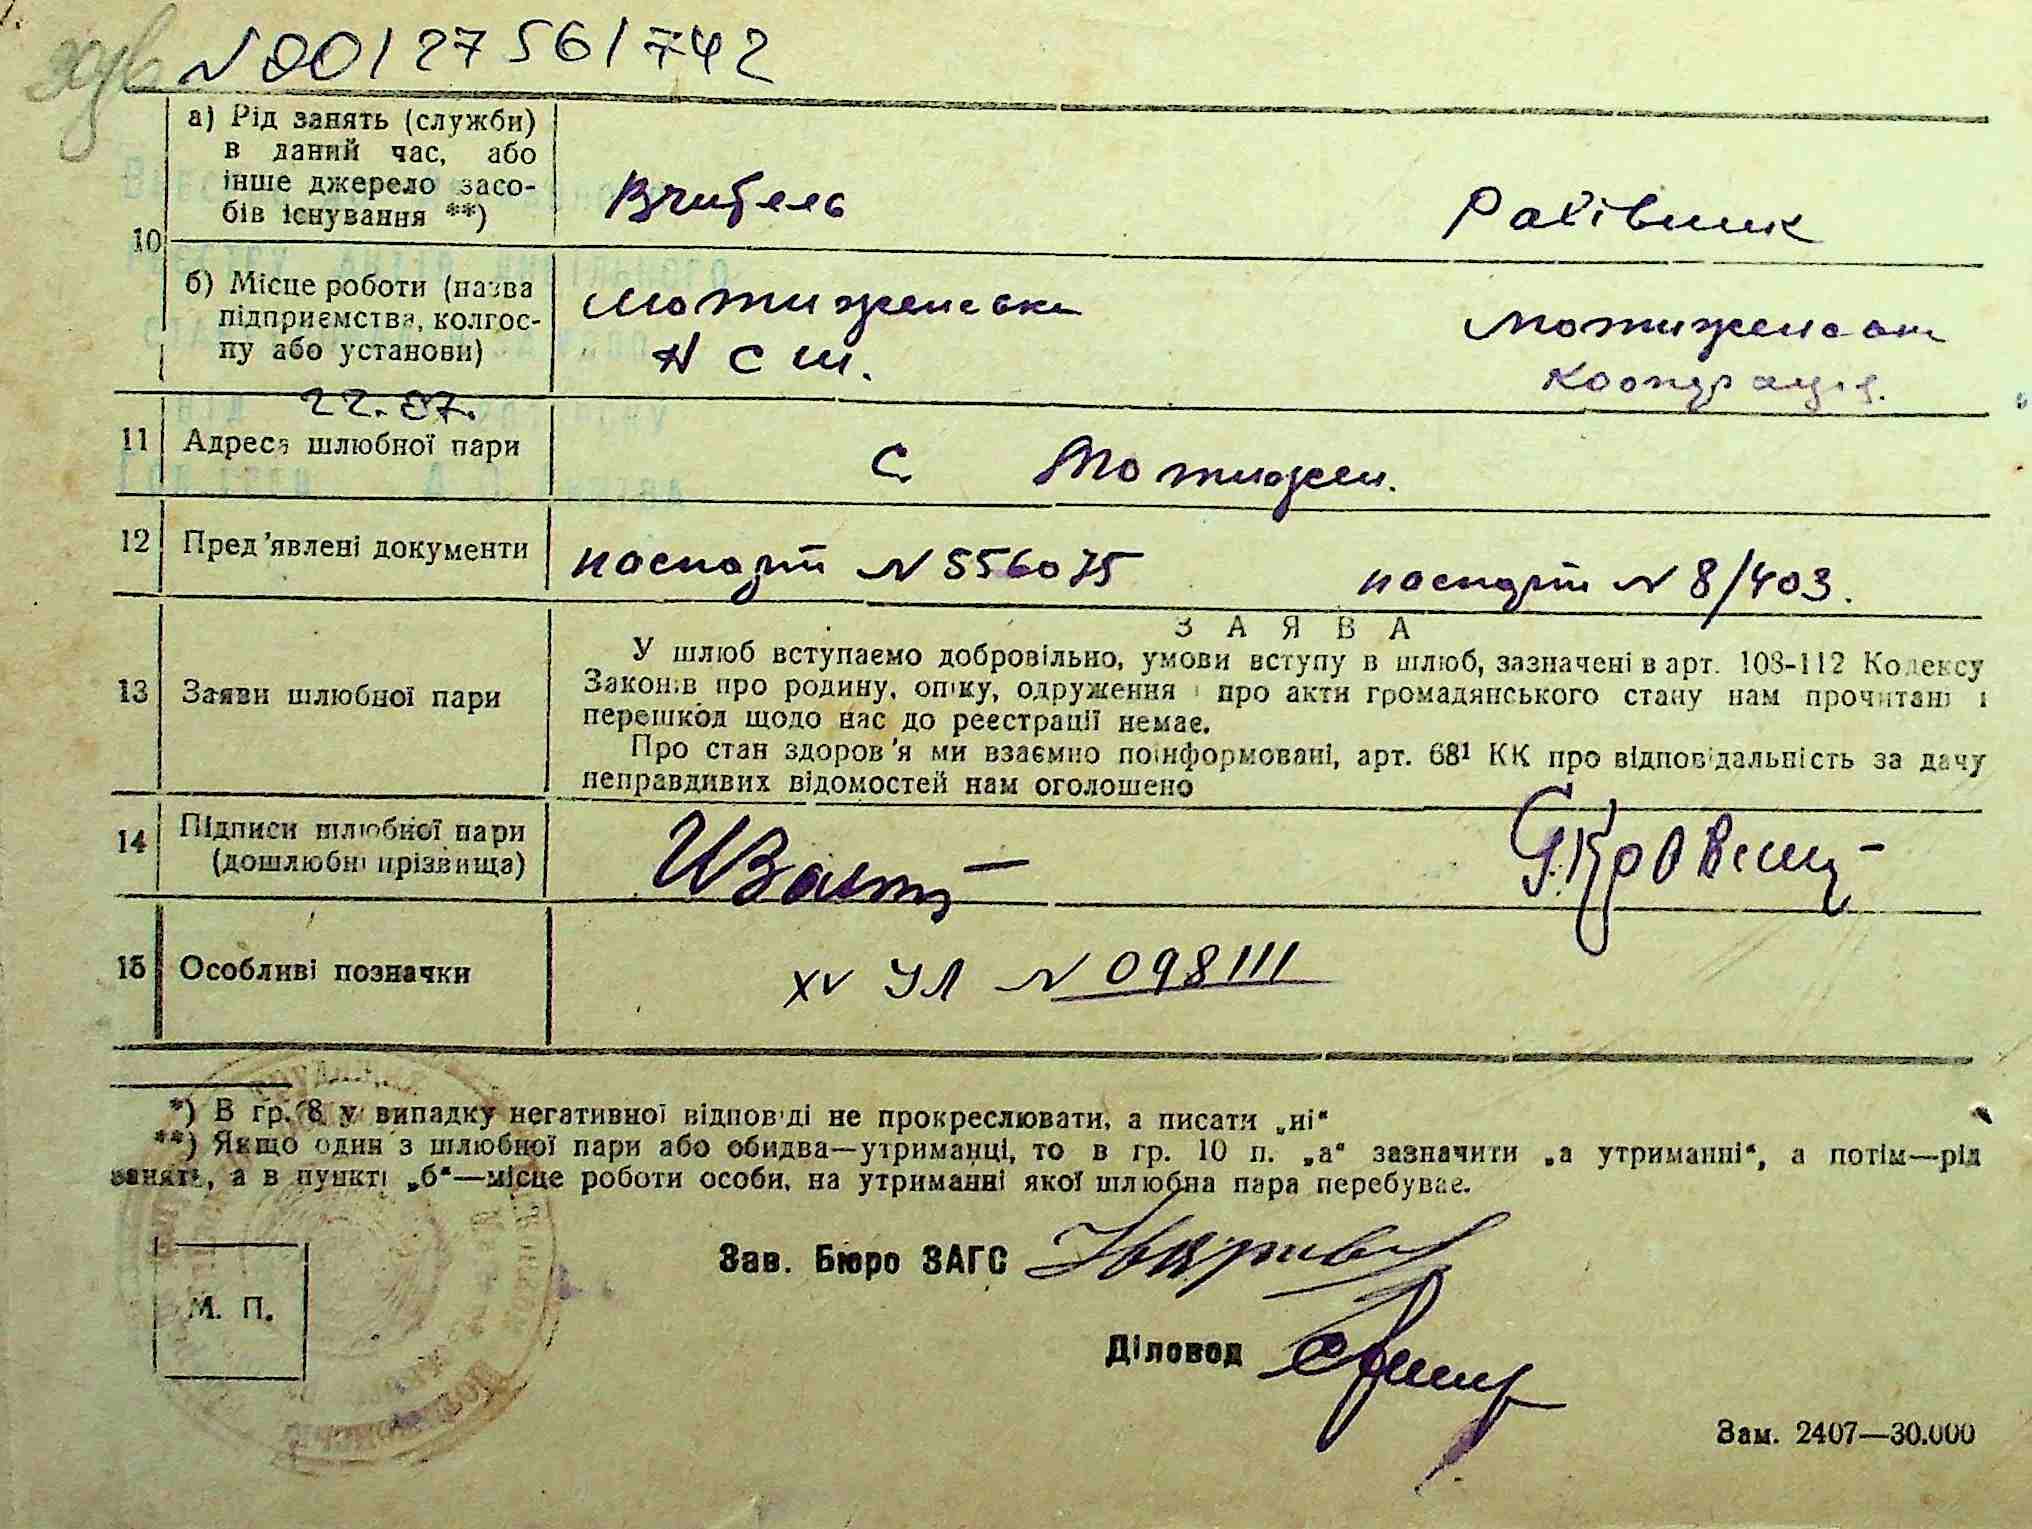 N 00127561742
а) Рід занять (служби)
в даний час, або
інше джерело засо-
бів існування **)
Вчитель
Рахівник
10
б) Місце роботи (назва
підприємства, колгос-
пу або установи)
Мотиженська
Н С Ш.
Мотиженськ
Кооперація.
22.07.
11 Адреса шлюбної пари
с Мотижен.
12 Пред'явлені документи
паспорт N 556075
паспорт N 8/403.
13 Заяви шлюбної пари
ЗАЯВА
У шлюб вступаємо добровільно, умови вступу в шлюб, зазначені в арт. 108-112 Кодексу
Законів про родину, опіку, одруження і про акти громадянського стану нам прочитані і
перешкод щодо нас до реєстрації немає.
Про стан здоров'я ми взаємно поінформовані, арт. 68¹ КК про відповідальність за дачу
неправдивих відомостей нам оголошено
14 Підписи шлюбної пари
(дошлюбні прізвища)
15 Особливі позначки
XV УЛ N 098111
*) В гр. 8 у випадку негативної відповіді не прокреслювати, а писати „ні“
**) Якщо один з шлюбної пари або обидва—утриманці, то в гр. 10 п. „а“ зазначити „а утриманні“, а потім—рід
занять, а в пункті „б“—місце роботи особи, на утриманні якої шлюбна пара перебуває.
Зав. Бюро ЗАГС
М. П.
Діловод
Зам. 2407—30.000